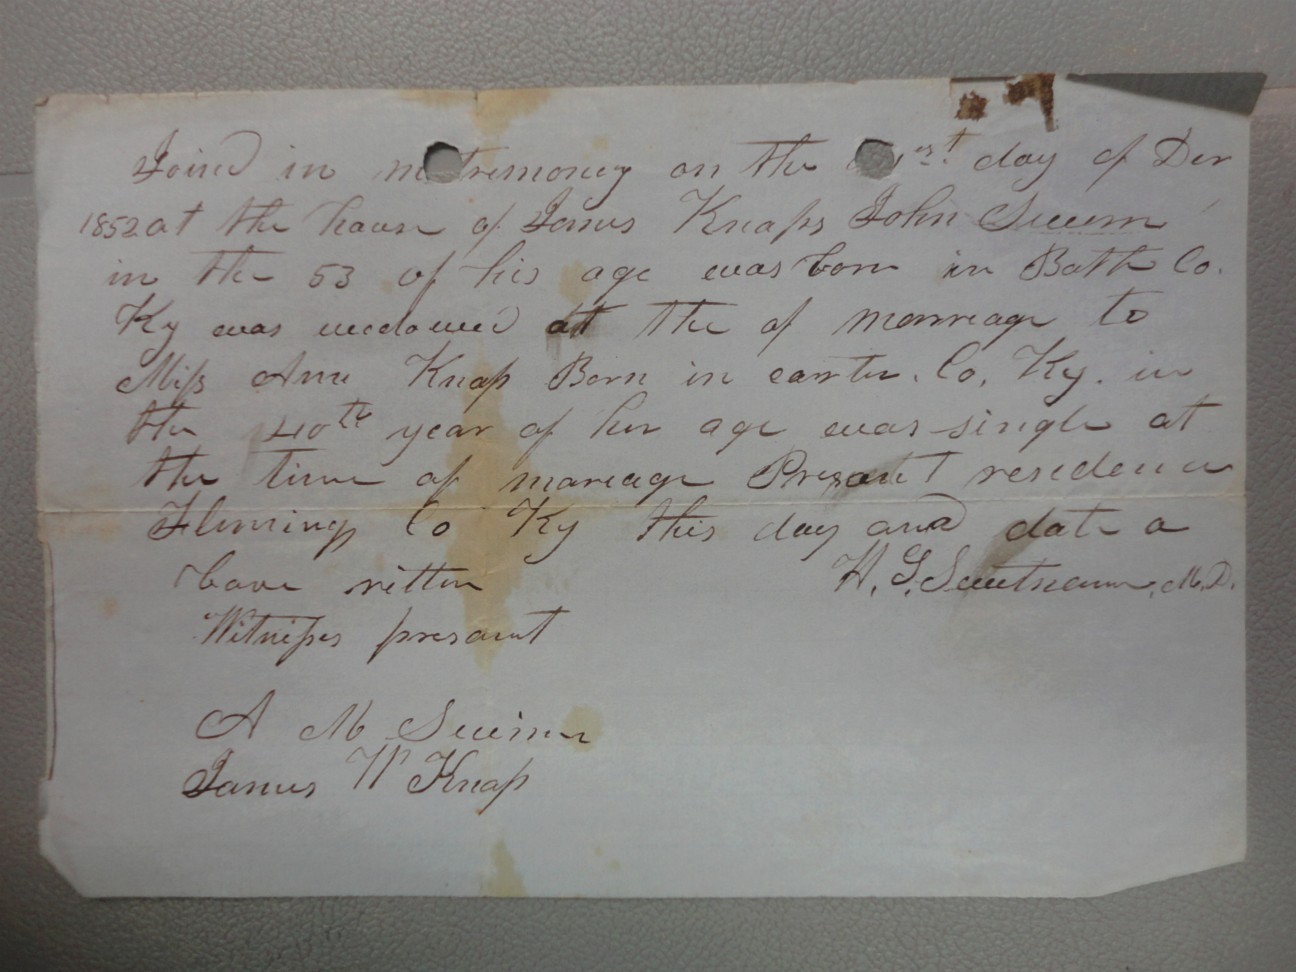 Joind in matremoney on the first day of Der
1852 at the house of James Knaps John Swim
in the 53 of his age was born in Bath Co.
Ky was wedowed at the of marreage to
Miss Ann Knap Born in carter. Co. Ky. in
the 40th year of her age was single at
the time of mareage Presant residence
Fleming Co Ky this day and date a
bove ritten H. G. M.D.
Witnisses presant
A M Swim
James W Knap